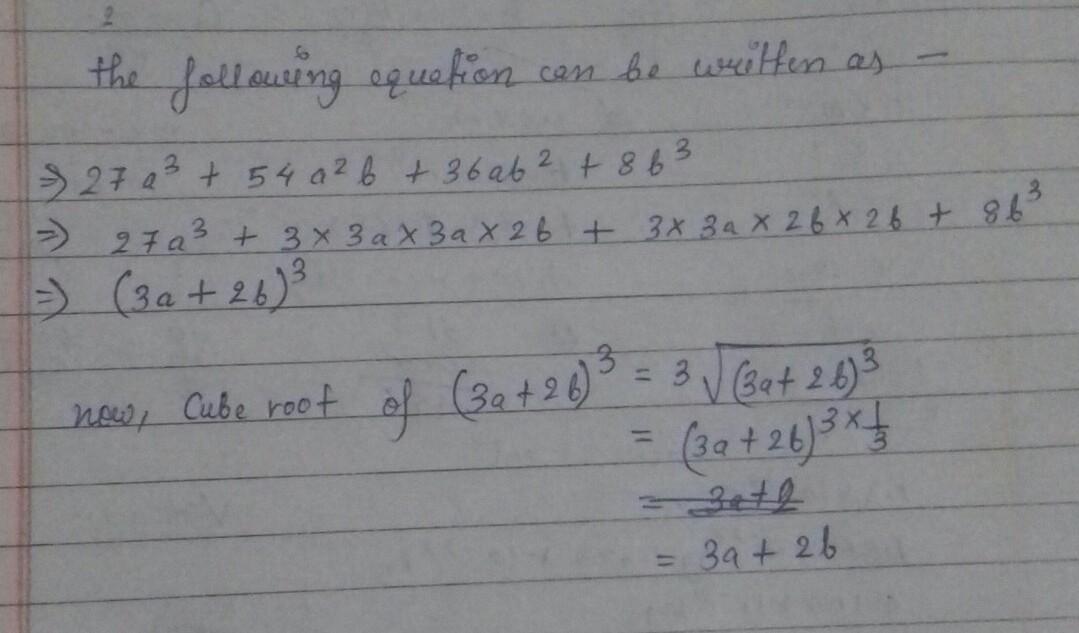 2
the following equation can be written as —
⇒ 27a³ + 54a²b + 36ab² + 8b³
⇒ 27a³ + 3×3a×3a×2b + 3×3a×2b×2b + 8b³
⇒ (3a + 2b)³
now, Cube root of (3a+2b)³ = 3√(3a+2b)³
= (3a+2b)^3×1/3
= 3a+2
= 3a + 2b